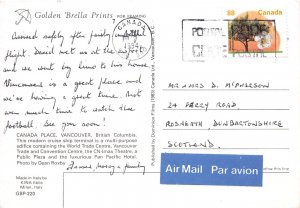 Golden 'Brella Prints FOR FRAMING
Arrived safely after fairly long
flight. David met us at the airport
and we went by limo to his house.
Vancouver is a great place and
we're having a great time. Not
even much time to watch the
football. See you soon!
CANADA PLACE, VANCOUVER, British Columbia.
This modern cruise ship terminal is a multi-purpose
edifice containing the World Trade Centre, Vancouver
Trade and Convention Centre, the CN-Imax Theatre, a
Public Plaza and the luxurious Pan Pacific Hotel.
Photo by Dean Rosby
family
Made in Italy by
KINA Italia
Milan, Italy
GBP-220
CANADA
POSTAL
CODE
POSTAL
88 Canada
MR & MRS D. MCPHERSON
24 PARRY ROAD
ROSNEATH DUNBARTONSHIRE
SCOTLAND
Air Mail Par avion